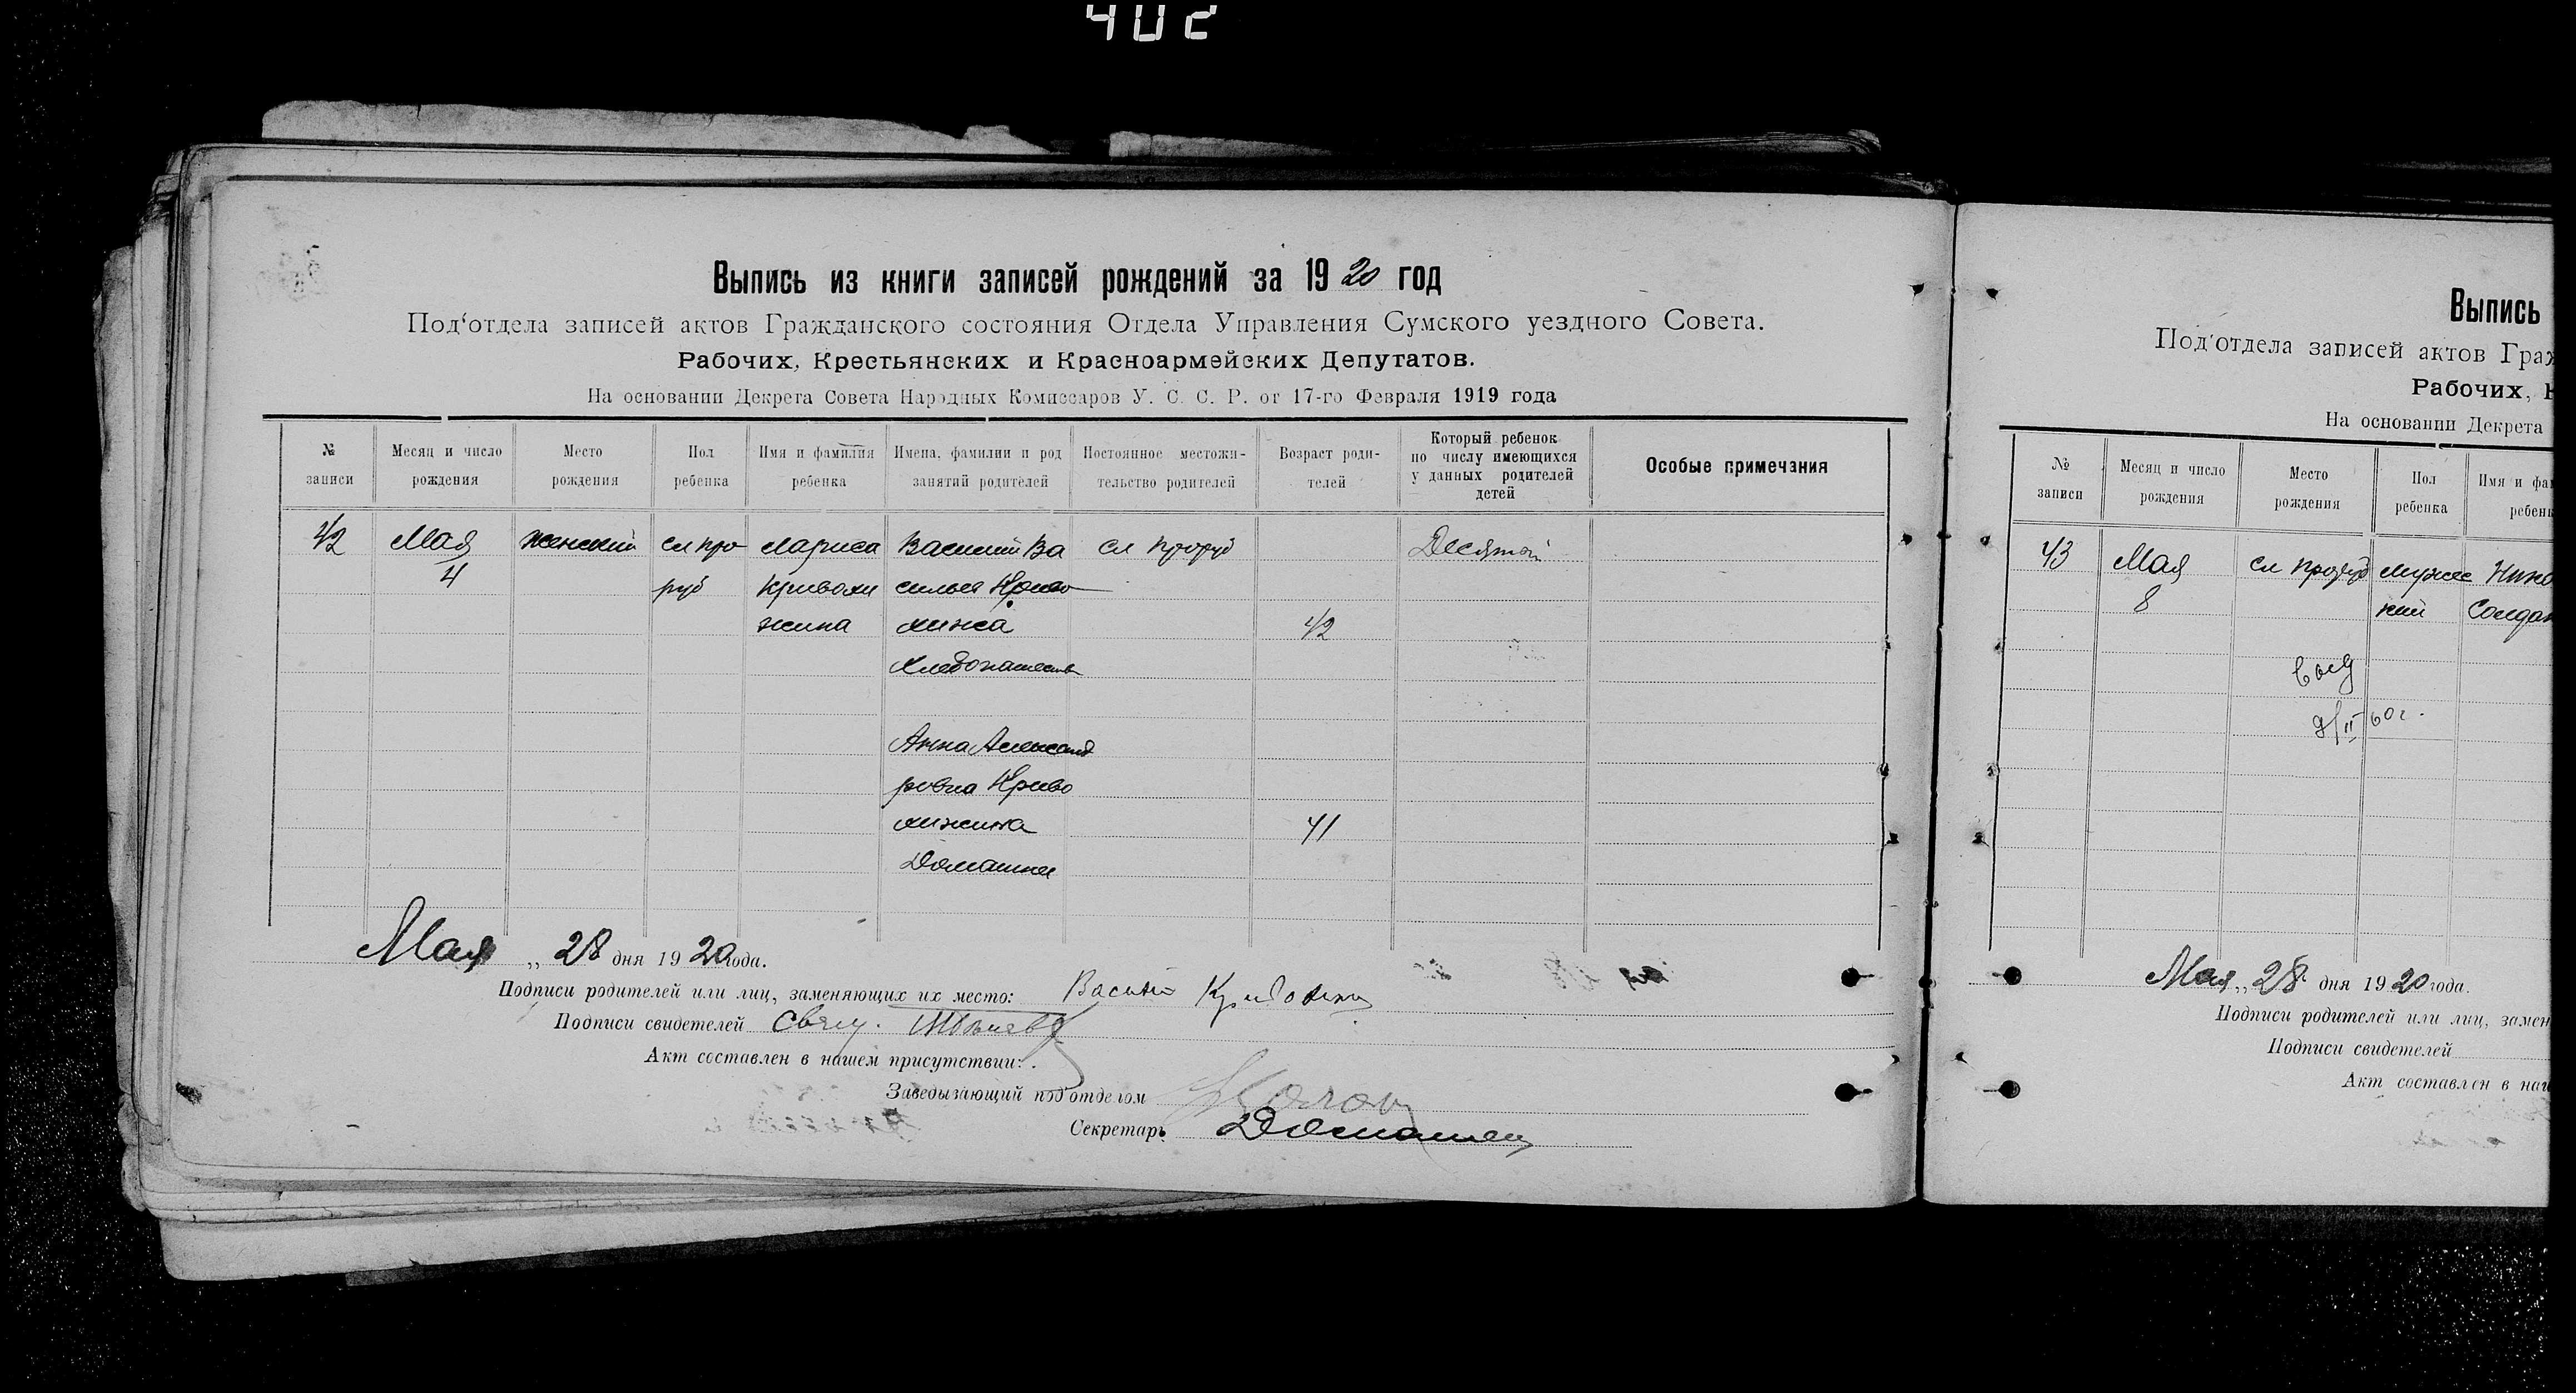 402
Выпись из книги записей рождений за 1920 год
Под'отдела записей актов Гражданского состояния Отдела Управления Сумского уездного Совета.
Рабочих, Крестьянских и Красноармейских Депутатов.
На основании Декрета Совета Народных Комиссаров У. С. С. Р. от 17-го Февраля 1919 года
№ записи
Месяц и число рождения
Место рождения
Пол ребенка
Имя и фамилия ребенка
Имена, фамилии и род занятий родителей
Постоянное местожи-тельство родителей
Возраст роди-телей
Который ребенок по числу имеющихся у данных родителей детей
Особые примечания
42 Мая женский сл про Лариса Василий Ва сл Проруб Десятой
4 руб Криволи сильев Криво
жина лижа 42
Хлебопашест
Анна Александ
ровна Криво
лижина 41
Домашнее
Мая „ 28 дня 1920 года.
Подписи родителей или лиц, заменяющих их место: Василий
Подписи свидетелей
Акт составлен в нашем присутствии:
Заведызающий под'отделом
Секретарь
Выпись
Под'отдела записей актов Граж
Рабочих, К
На основании Декрета
№ записи
Месяц и число рождения
Место рождения
Пол ребенка
Имя и фа
ребен
43 Мая сл Проруб мужес Нико
8 кий
60 г.
Мая „ 28 дня 1920 года.
Подписи родителей или лиц, замен
Подписи свидетелей
Акт составлен в наш